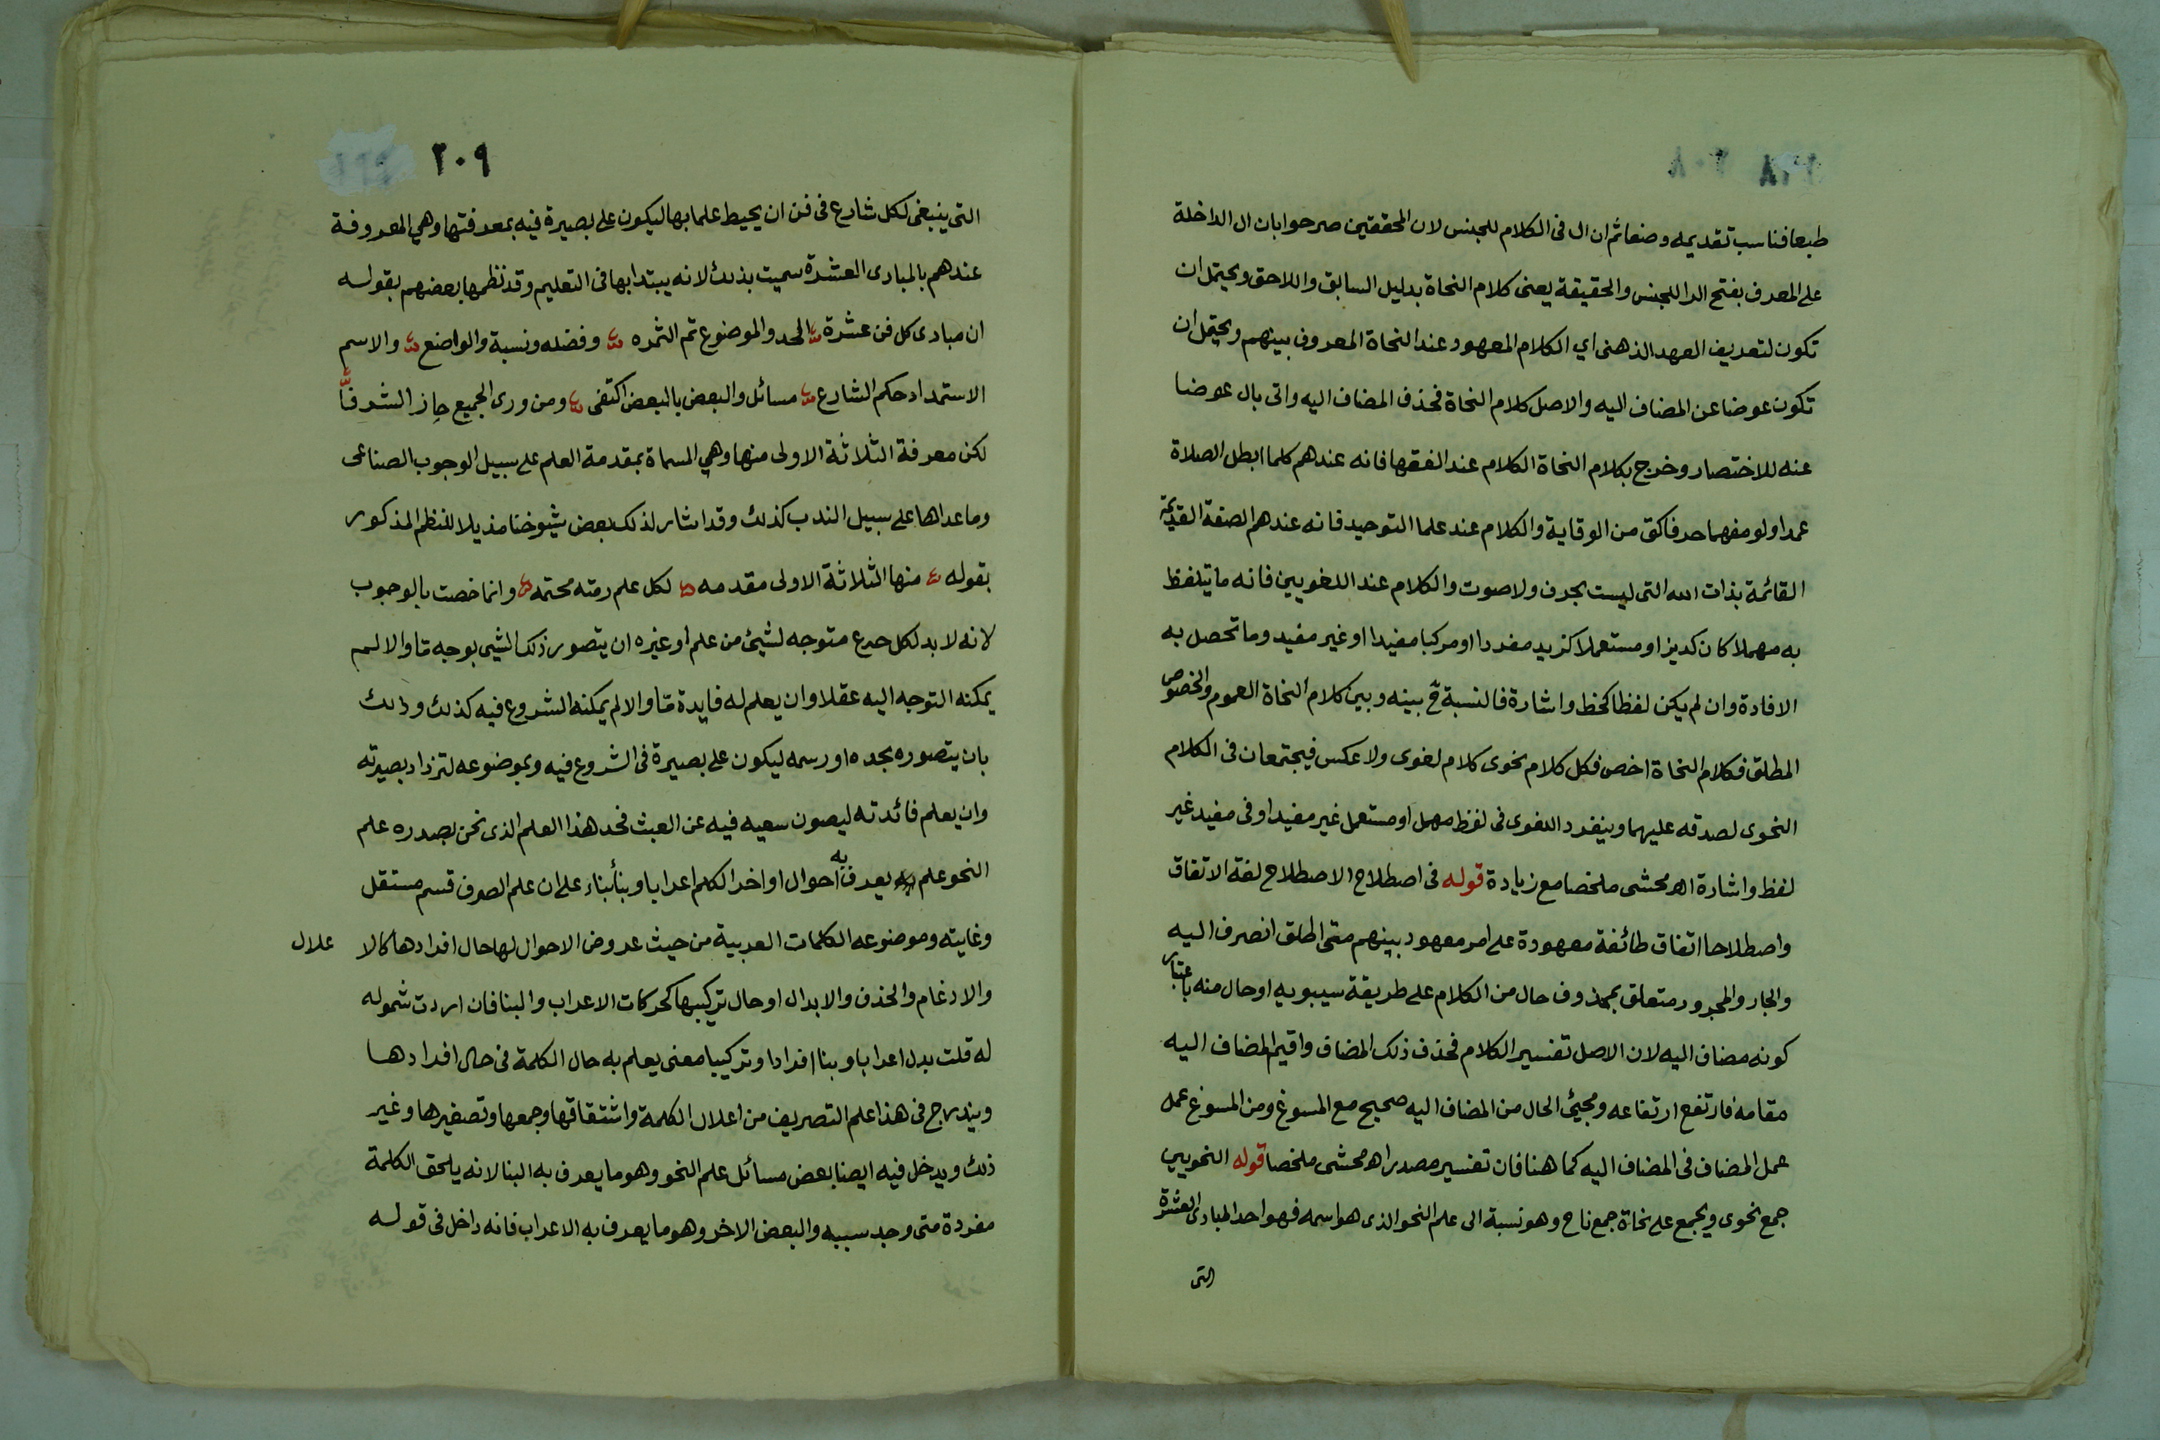 ٢٠٨
طبعا فناسب تقديمه وضعا ثم ان ال فى الكلام للجنس لان المحققين صرحوا بان ال الداخلة
على المعرف بفتح الرا للجنس والحقيقة يعنى كلام النحاة بدليل السابق واللاحق ويحتمل ان
تكون لتعريف العهد الذهنى اي الكلام المعهود عند النحاة المعروف بينهم ويحتمل ان
تكون عوضا عن المضاف اليه والاصل كلام النحاة فحذف المضاف اليه واتى بال عوضا
عنه للاختصار وخرج بكلام النحاة الكلام عند الفقها فانه عندهم كلما ابطل الصلاة
عمدا ولو مفهما حرفا كق من الوقاية والكلام عند علما التوحيد فانه عندهم الصفة القديمة
القائمة بذات الله التى ليست بحرف ولا صوت والكلام عند اللغويين فانه ما يتلفظ
به مهملا كان كديز او مستعملا كزيد مفردا او مركبا مفيدا او غير مفيد وما تحصل به
الافادة وان لم يكن لفظا كخط واشارة فالنسبة ح بينه وبين كلام النحاة العموم والخصوص
المطلق فكلام النحاة اخص فكل كلام نحوى كلام لغوى ولا عكس فيجتمعان فى الكلام
النحوى لصدقه عليهما وينفرد اللغوى فى لفظ مهمل او مستعمل غير مفيد او فى مفيد غير
لفظ واشارة اه محشى ملخصا مع زيادة قوله فى اصطلاح الاصطلاح لغة الاتفاق
واصطلاحا اتفاق طائفة معهودة على امر معهود بينهم متى اطلق انصرف اليه
والجار والمجرور متعلق بمحذوف حال من الكلام على طريقة سيبويه او حال منه باعتبار
كونه مضاف اليه لان الاصل تفسير الكلام فحذف ذلك المضاف واقيم المضاف اليه
مقامه فارتفع ارتفاعه ومجيئ الحال من المضاف اليه صحيح مع المسوغ ومن المسوغ عمل
عمل المضاف فى المضاف اليه كما هنا فان تفسير مصدر اه محشى ملخصا قوله النحويين
جمع نحوى ويجمع على نحاة جمع ناح وهو نسبة الى علم النحو الذى هو اسمه فهو احد المبادى العشرة
التى
٢٠٩
التى ينبغى لكل شارع فى فن ان يحيط علما بها ليكون على بصيرة فيه بمعرفتها وهي المعروفة
عندهم بالمبادى العشرة سميت بذلك لانه يبتدا بها فى التعليم وقد نظمها بعضهم بقوله
ان مبادى كل فن عشرة الحد والموضوع ثم الثمره وفضله ونسبة والواضع والاسم
الاستمداد حكم الشارع مسائل والبعض بالبعض اكتفى ومن درى الجميع حاز الشرفا
لكن معرفة الثلاثة الاولى منها وهي المسماة بمقدمة العلم على سبيل الوجوب الصناعى
وما عداها على سبيل الندب كذلك وقد اشار لذلك بعض شيوخنا مذيلا للنظم المذكور
بقوله منها الثلاثة الاولى مقدمه لكل علم رمته محتمه وانما خصت بالوجوب
لانه لا بد لكل متوجه لشيئ من علم او غيره ان يتصور ذلك الشيئ بوجه مّا والا لم
يمكنه التوجه اليه عقلا وان يعلم له فايدة مّا والا لم يمكنه الشروع فيه كذلك وذلك
بان يتصوره بحده او رسمه ليكون على بصيرة فى الشروع فيه وبموضوعه لتزداد بصيرته
وان يعلم فائدته ليصون سعيه فيه عن العبث فحد هذا العلم الذى نحن بصدره علم
النحو علم يعرف به احوال اواخر الكلم اعرابا وبنأ بناء على ان علم الصرف قسم مستقل
وغايته وموضوعه الكلمات العربية من حيث عروض الاحوال لها حال افرادها كالا علال
والادغام والحذف والابدال او حال تركيبها كحركات الاعراب والبنا فان اردت شموله
له قلت بدل اعرابا وبنا افرادا وتركيبا معنى يعلم به حال الكلمة فى حال افرادها
ويندرج فى هذا علم التصريف من اعلال الكلمة واشتقاقها وجمعها وتصغيرها وغير
ذلك ويدخل فيه ايضا بعض مسائل علم النحو وهو ما يعرف به البنا لانه يلحق الكلمة
مفردة متى وجد سببه والبعض الاخر وهو ما يعرف به الاعراب فانه داخل فى قوله